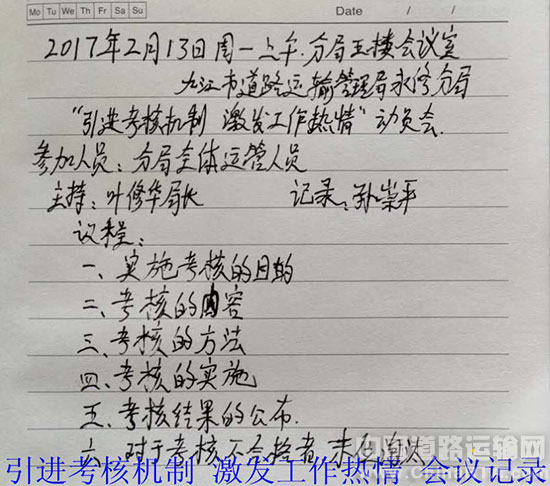 Mo Tu We Th Fr Sa Su
Date / /
2017年2月13日周一上午.分局五楼会议室
九江市道路运输管理局永修分局
“引进考核机制 激发工作热情”动员会.
参加人员：分局全体运管人员
主持：叶修华局长 记录：孙崇平
议程：
一、实施考核的目的
二、考核的内容
三、考核的方法
四、考核的实施
五、考核结果的公布.
六、对于考核不合格者 末尾淘汰
中国道路运输网
引进考核机制 激发工作热情 会议记录